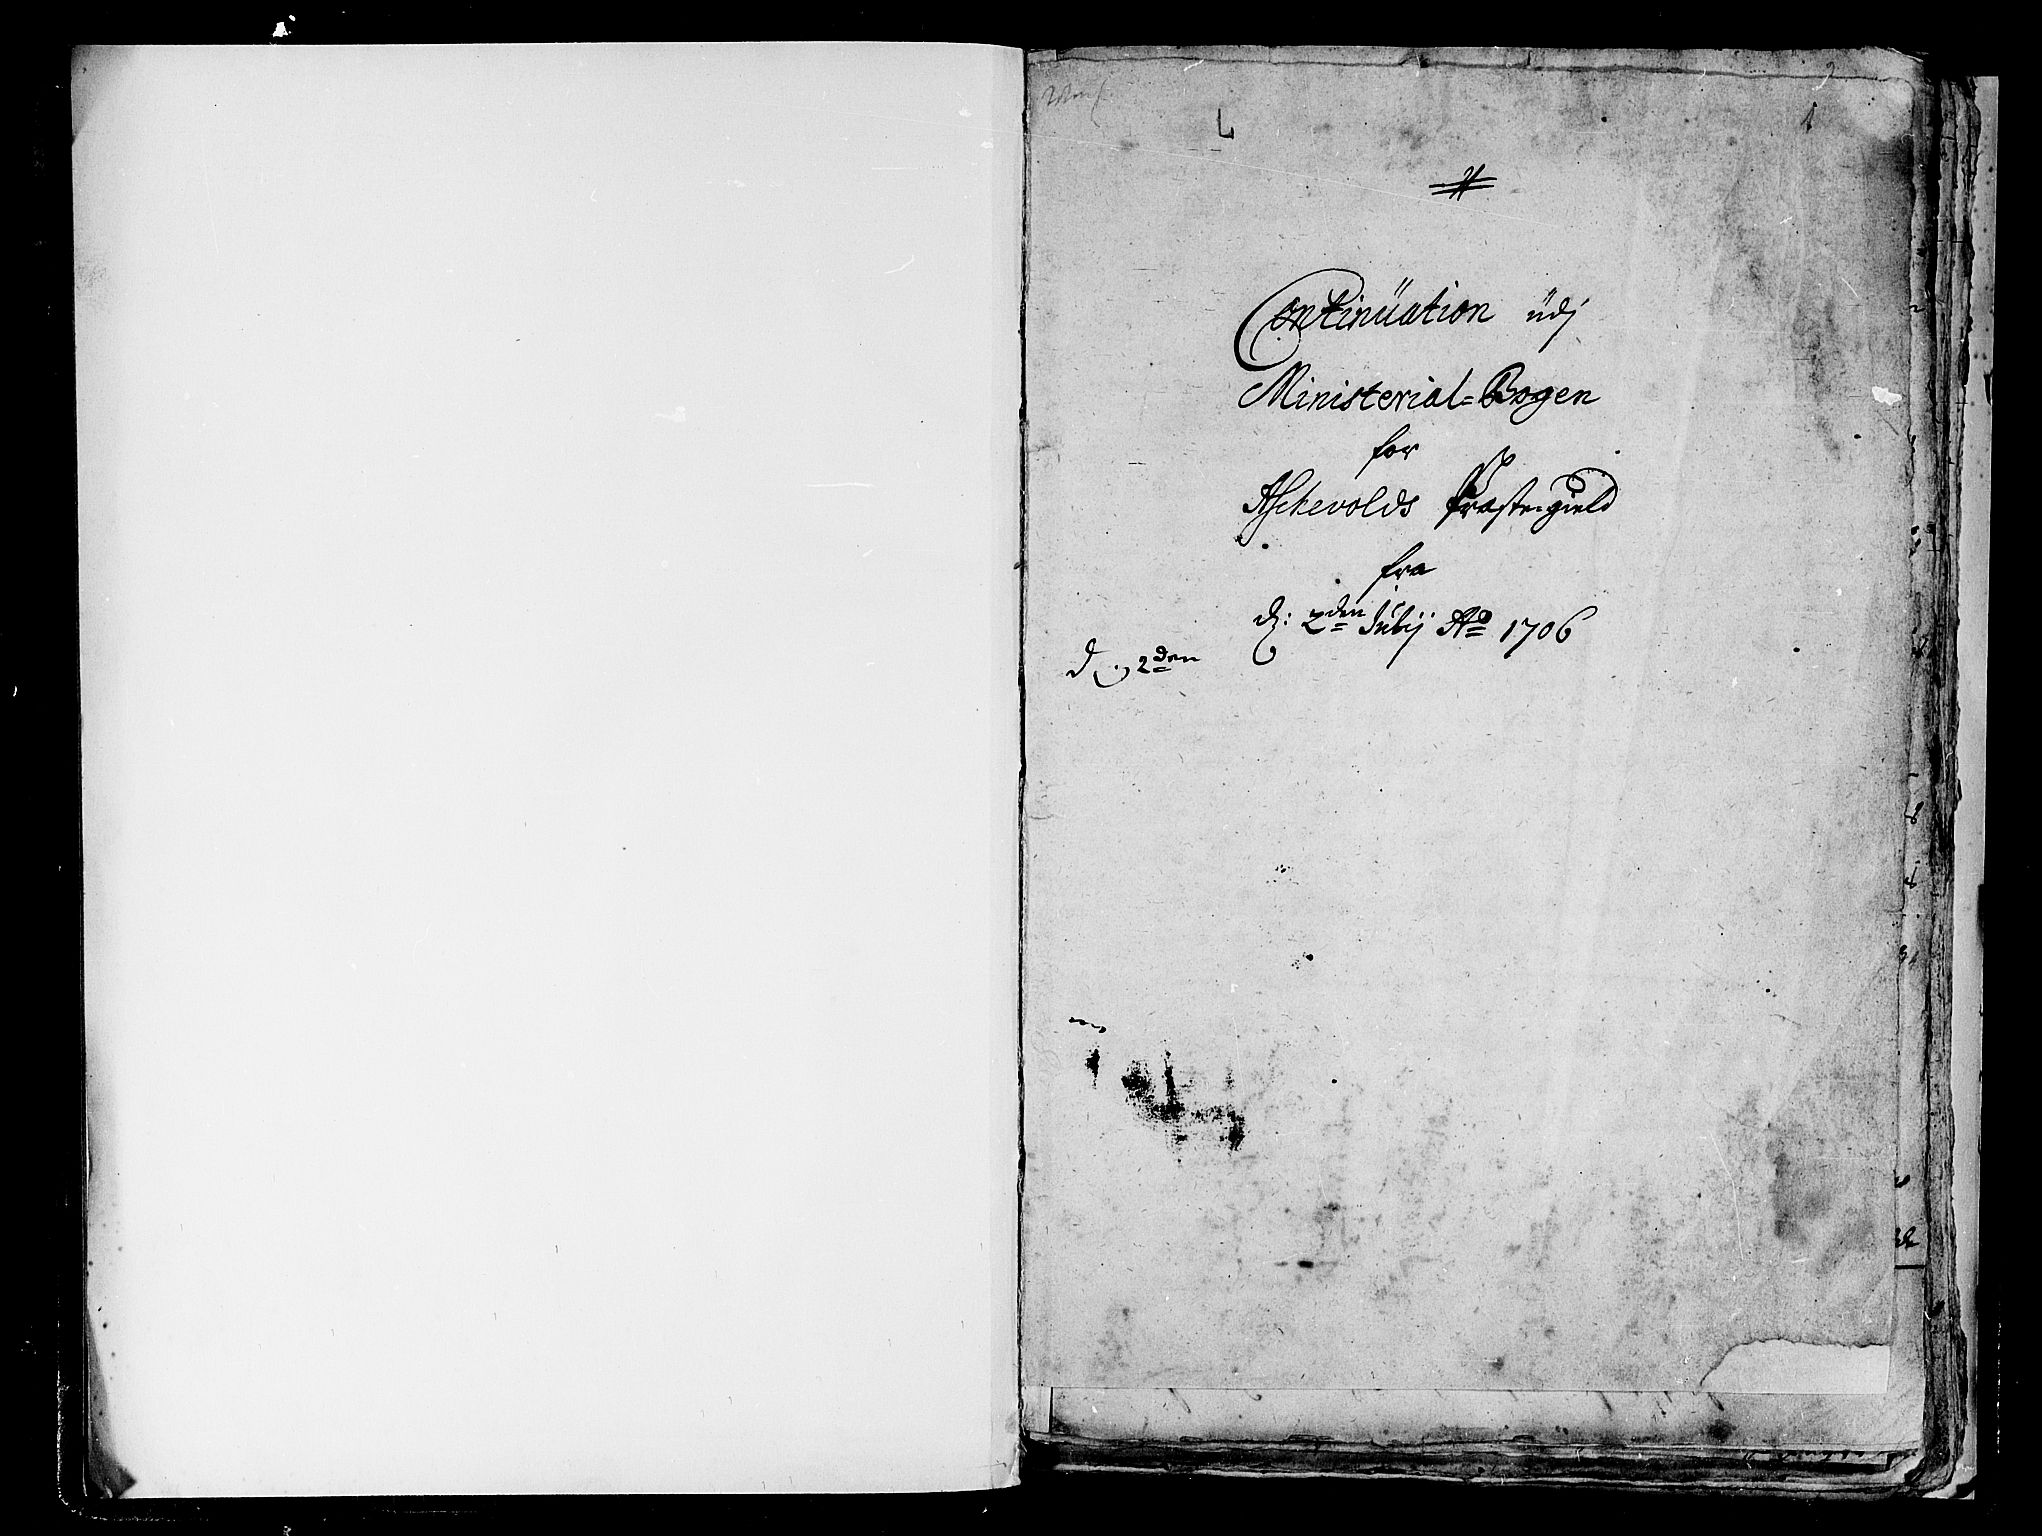 1
Continüation üdj
Ministerial=Bogen
for
Askevolds Præstegield
fra
d: 2den Julij Ao 1706
d. 2den